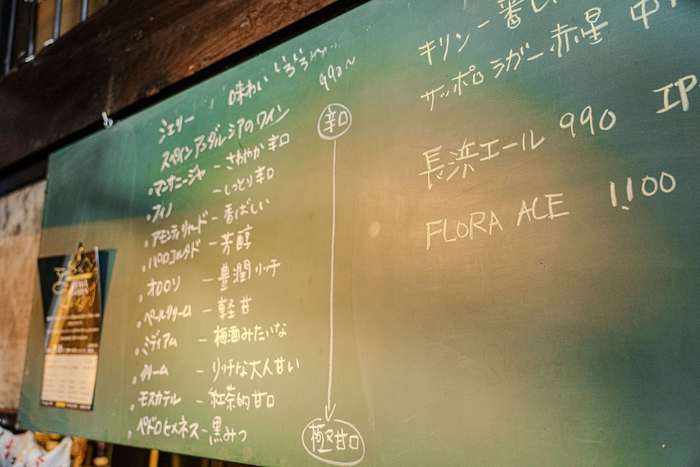 ジェリー 味わいいろいろ 990〜
スペイン アンダルシアのワイン
・マンサニージャ ー さわやか辛口
・フィノ ー しっとり辛口
・アモンティリャード ー 香ばしい
・パロコルタド ー 芳醇
・オロロソ ー 豊潤リッチ
・ペールクリーム ー 軽甘
・ミディアム ー 梅酒みたいな
・クリーム ー リッチな大人甘い
・モスカテル ー 紅茶的甘口
・ペドロヒメネス ー 黒みつ
辛口
極甘口
キリン 一番し
サッポロラガー赤星 中
長浜エール 990 IP
FLORA ACE 1,100